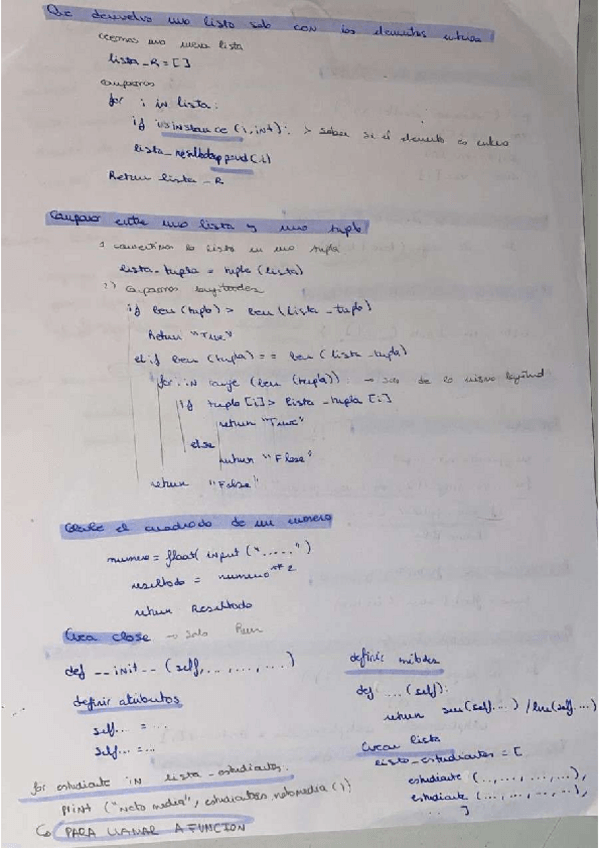 Que devuelva una lista solo con los elementos enteros
creamos una nueva lista
lista_R = []
comparamos
for i in lista:
if isinstance (i, int): > saber si el elemento es entero
lista_resultado append (i)
Return lista_R
Comparar entre una lista y una tupla
1 convertimos la lista en una tupla
lista_tupla = tupla (lista)
2) Comparamos longitudes
if len (tupla) > len (lista_tupla)
Return "True"
elif len (tupla) == len (lista_tupla)
for i in range (len (tupla)) → son de la misma longitud
if tupla [i] > lista_tupla [i]
return "True"
else
return "Flase"
return "False"
el cuadrado de un numero
numero = float( input (".....")
resultado = numero ** 2
return Resultado
Crea clase → solo
def __init__ (self, ..., ..., ...)
definir atributos
self... = ...
self... = ...
definir métodos
def ... (self):
return sum(self...) / len(self...)
Crear lista
lista_estudiantes = [
estudiante (..., ..., ..., ...),
estudiante (..., ..., ..., ..),
... ]
for estudiante in lista_estudiantes:
print ("Nota media", estudiantes, notamedia ())
PARA LLAMAR A FUNCION